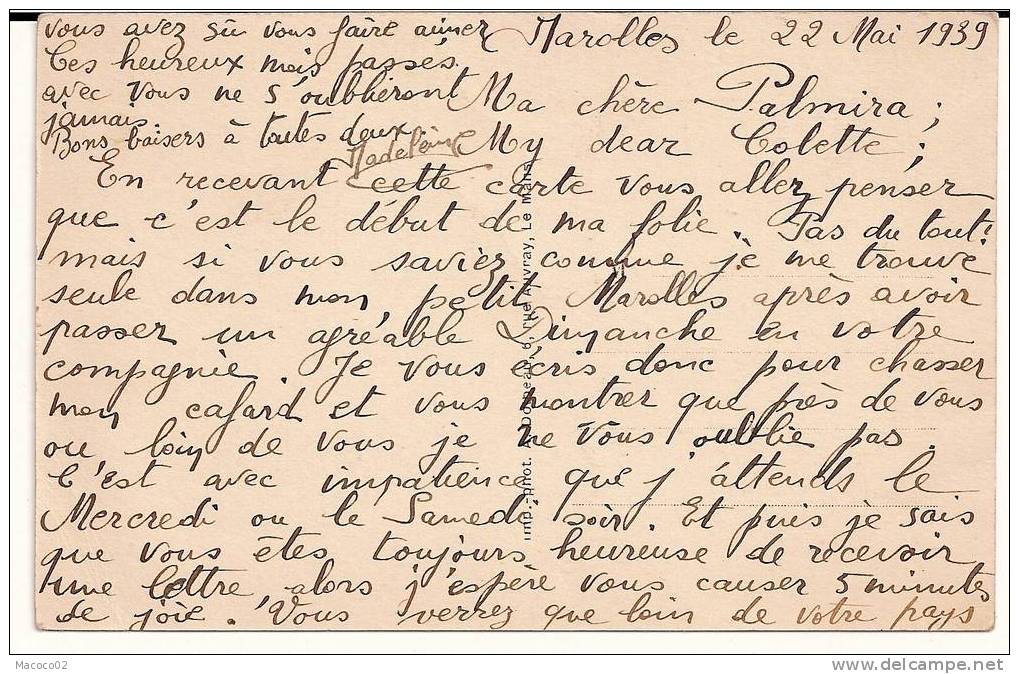 Marolles le 22 Mai 1939
Ma chère Palmira,
My dear Colette,
En recevant cette carte vous allez penser
que c'est le début de ma folie. Pas du tout!
mais si vous saviez comme je me trouve
seule dans mon petit Marolles après avoir
passer un agréable Dimanche en votre
compagnie. Je vous écris donc pour chasser
mon cafard et vous montrer que près de vous
ou loin de vous je ne vous oublie pas.
C'est avec impatience que j'attends le
Mercredi ou le Samedi soir. Et puis je sais
que vous êtes toujours heureuse de recevoir
une lettre alors j'espère vous causer 5 minutes
de joie. Vous verrez que loin de votre pays
vous avez sû vous faire aimer
Ces heureux mois passés
avec vous ne s'oublieront
jamais.
Bons baisers à toutes deux.
Madeleine
Imp.-phot. A. Dolbeau, 6, rue Auvray, Le Mans
Macoco02
delcampe.net